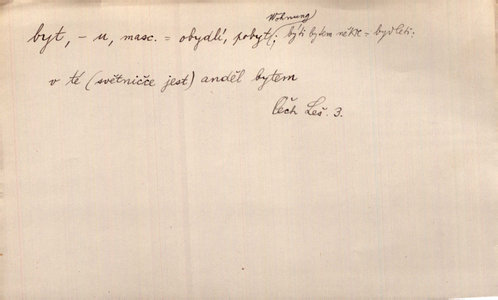 Wohnung
byt, – u, masc. = obydlí, pobyt; býti bytem někde = bydleti;
v té (světničce jest) anděl bytem
Čech Leš. 3.